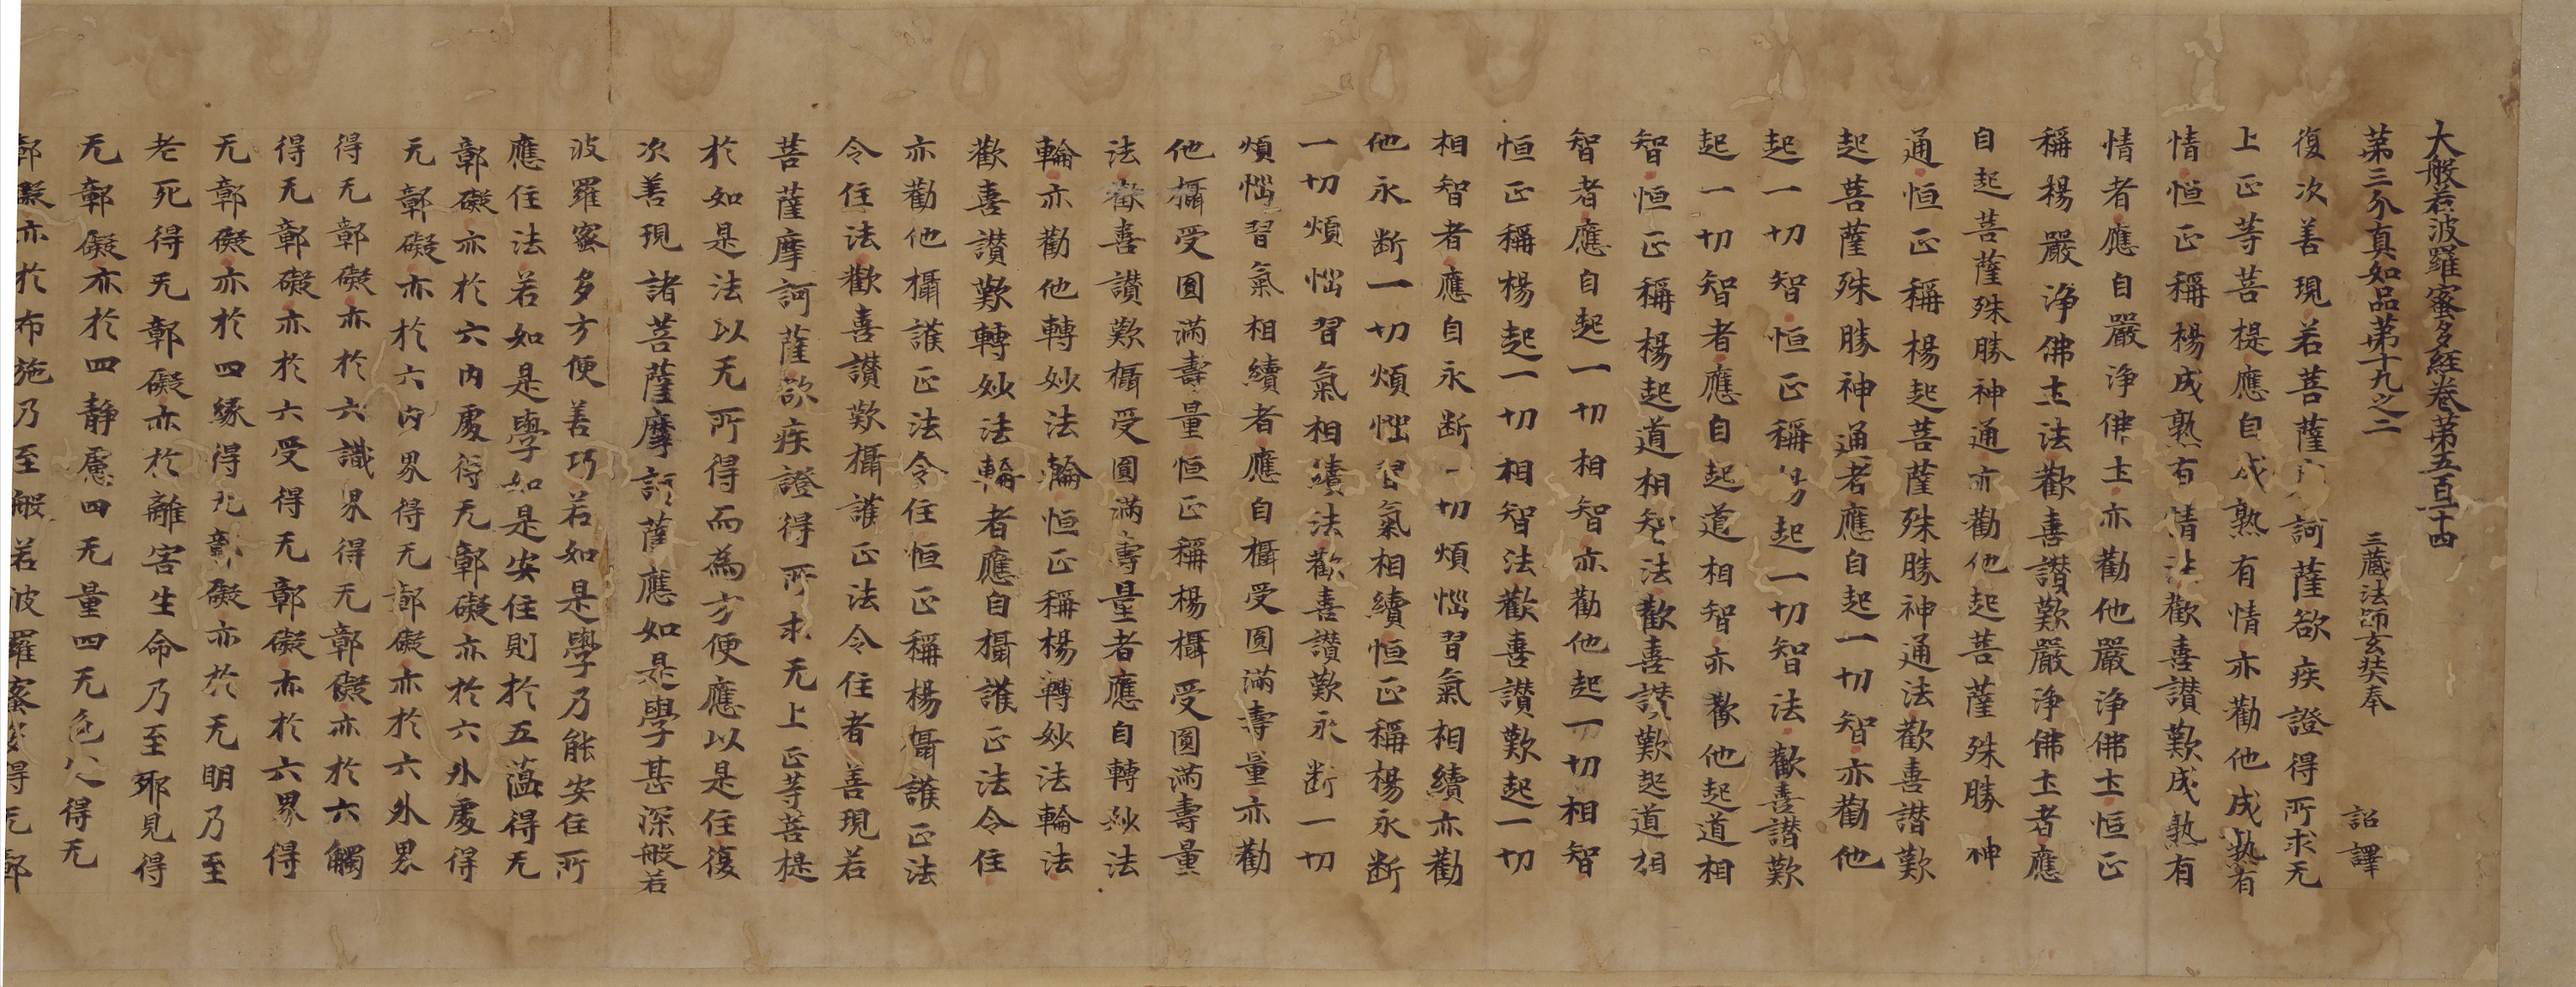 大般若波羅蜜多經卷第五百一十四
第三分真如品第十九之二 三藏法師玄奘奉 詔譯
復次善現若菩薩訶薩欲疾證得所求无
上正等菩提應自成熟有情亦勸他成熟有
情恒正稱楊成熟有情法歡喜讃歎成熟有
情者應自嚴淨佛圡亦勸他嚴淨佛圡恒正
稱楊嚴淨佛圡法歡喜讃歎嚴淨佛圡者應
自起菩薩殊勝神通亦勸他起菩薩殊勝神
通恒正稱楊起菩薩殊勝神通法歡喜讃歎
起菩薩殊勝神通者應自起一切智亦勸他
起一切智恒正稱起一切智法歡喜讃歎
起一切智者應自起道相智亦勸他起道相
智恒正稱楊起道相智法歡喜讃歎起道相
智者應自起一切相智亦勸他起一切相智
恒正稱楊起一切相智法歡喜讃歎起一切
相智者應自永断一切煩惱習氣相續亦勸
他永断一切煩惱習氣相續恒正稱楊永断
一切煩惱習氣相續法歡喜讃歎永断一切
煩惱習氣相續者應自攝受圓滿壽量亦勸
他攝受圓滿壽量恒正稱楊攝受圓滿壽量
法歡喜讃歎攝受圓滿壽量者應自轉妙法
輪亦勸他轉妙法輪恒正稱楊轉妙法輪法
歡喜讃歎轉妙法輪者應自攝護正法令住
亦勸他攝護正法令住恒正稱楊攝護正法
令住法歡喜讃歎攝護正法令住者善現若
菩薩摩訶薩欲疾證得所求无上正等菩提
於如是法以无所得而為方便應以是住復
次善現諸菩薩摩訶薩應如是學甚深般若
波羅蜜多方便善巧若如是學乃能安住所
應住法若如是學如是安住則於五蕴得无
鄣礙亦於六内處得无鄣礙亦於六外處得
无鄣礙亦於六内界得无鄣礙亦於六外界
得无鄣礙亦於六識界得无鄣礙亦於六觸
得无鄣礙亦於六受得无鄣礙亦於六界得
无鄣礙亦於四緣得无鄣礙亦於无明乃至
老死得无鄣礙亦於離害生命乃至邪見得
无鄣礙亦於四静慮四无量四无色得无
鄣礙亦於布施乃至般若波羅蜜多得无鄣